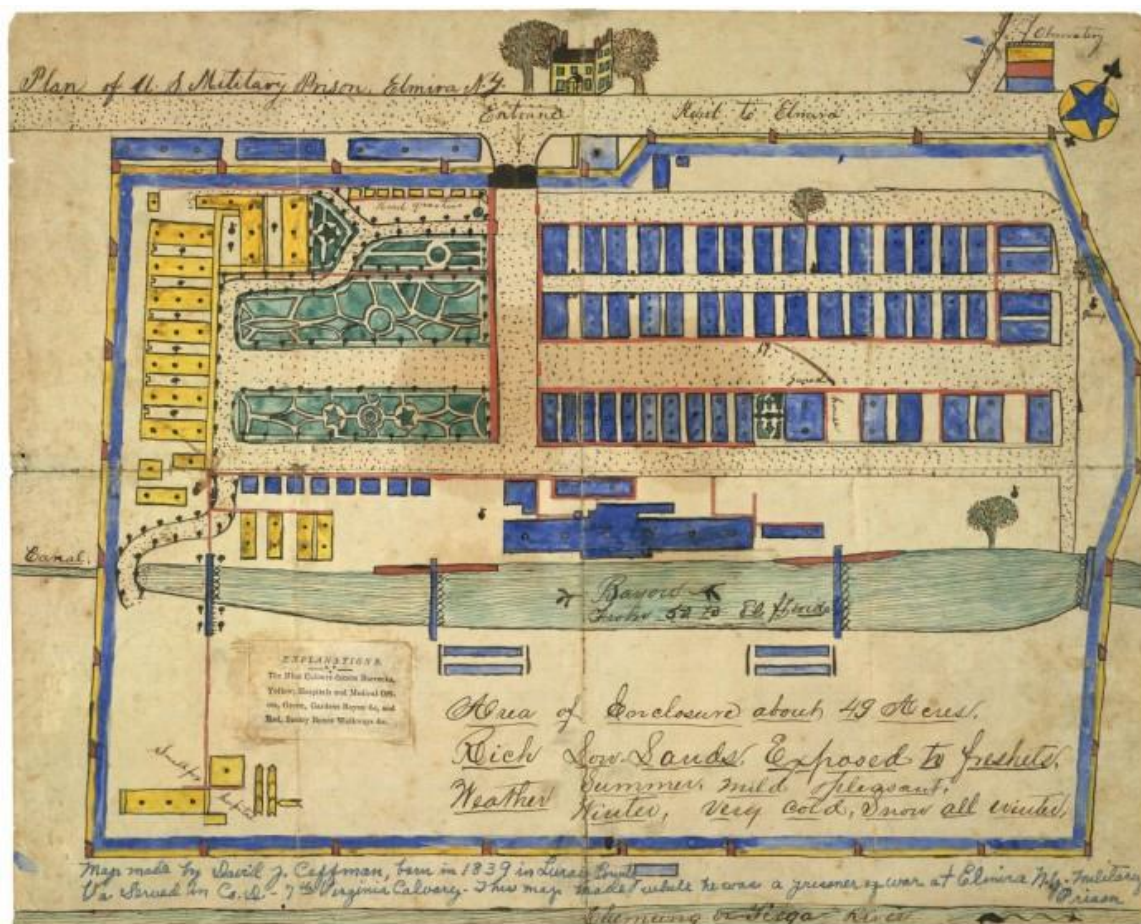 Observatory
Plan of U. S Military Prison, Elmira N.Y.
Entrance
Road to Elmira
Head quarters
Pump
guard
house
Canal.
Bayou
From 52 to 80 ft wide
EXPLANATIONS.
The Blue Colours denote Barracks,
Yellow, Hospitals and Medical Offi-
ces, Green, Gardens Bayou &c, and
Red, Sentry Boxes Walkways &c.
Area of Enclosure about 49 Acres.
Rich Low Lands. Exposed to freshets.
Weather Summer, mild & pleasant.
Winter, very cold, Snow all winter,
Small pox
hospital
Map made by David J. Coffman, born in 1839 in Luray
Va. Served in Co. D - 7th Virginia Calvary - This map made while he was a prisoner of war at Elmira N.Y. Military
Prison
Chemung or Tioga River